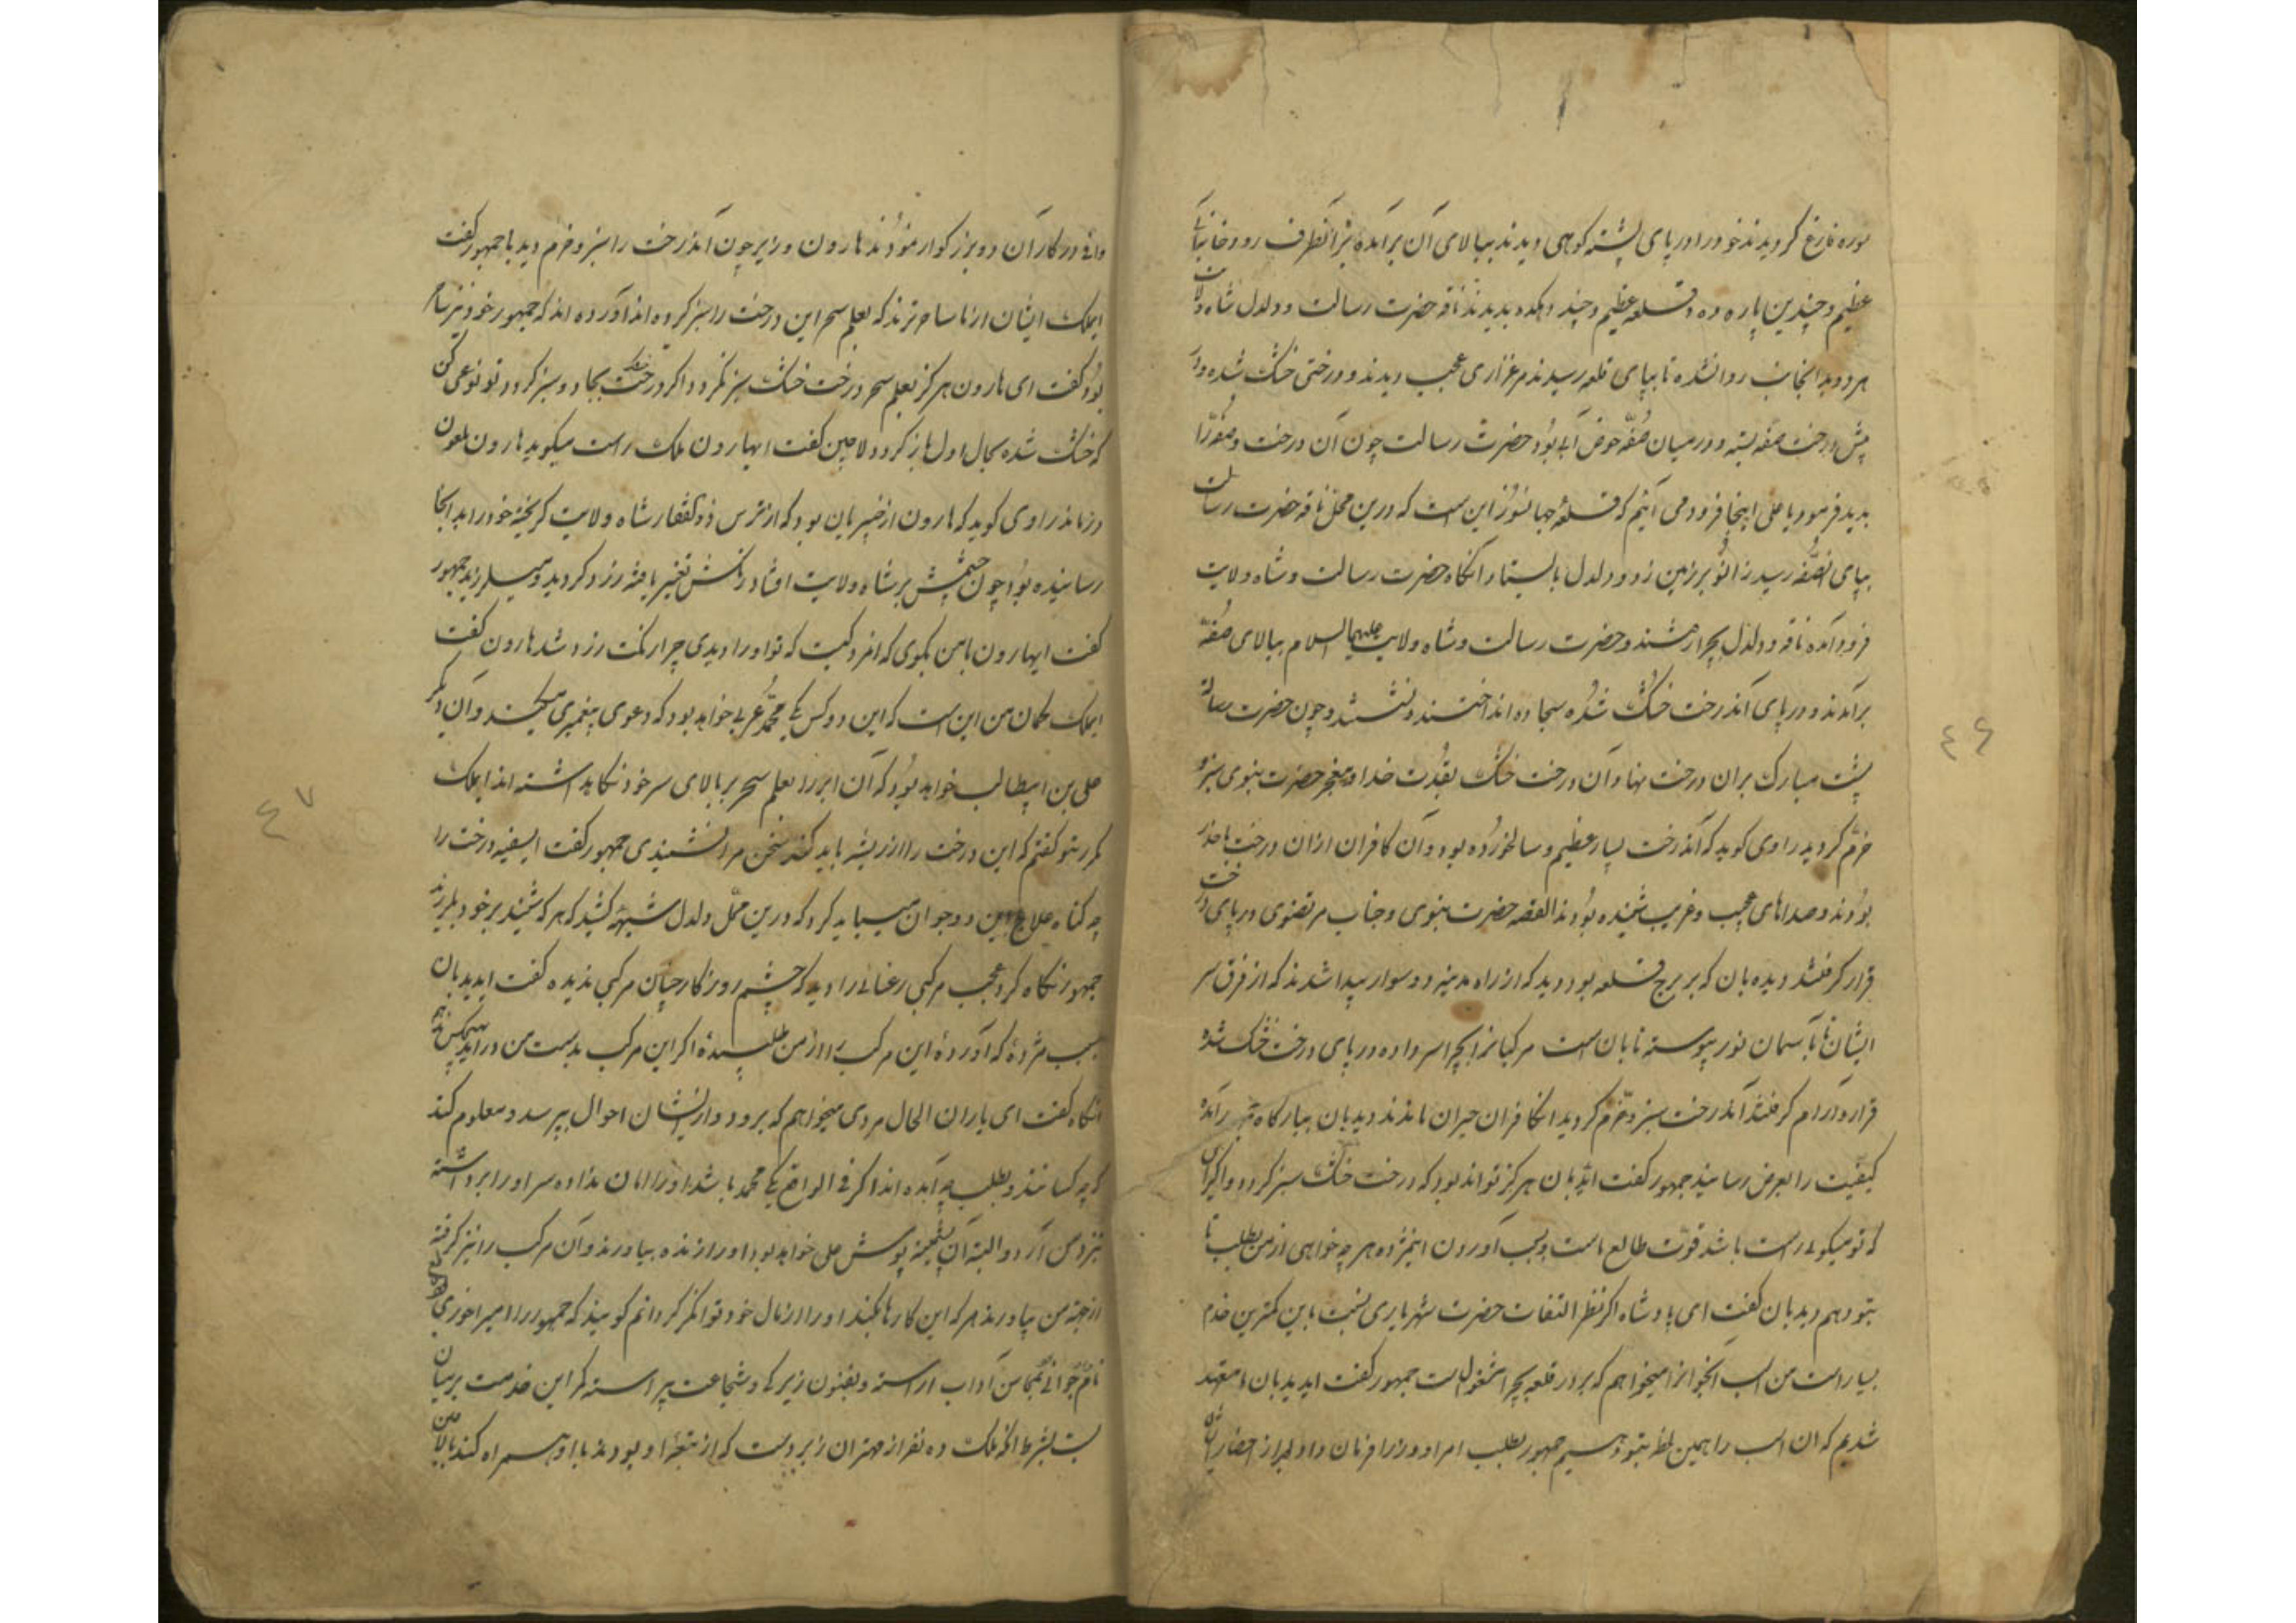 سوره فارغ گردیدند خود را در پای پشته کوهی دیدند ببالای آن برآمده نیز آنطرف رودخانهٔ
عظیم و چندین پاره ده و قلعه عظیم و چند دهکده بدیدند ناقه حضرت رسالت و دلدل شاه ولایت
هر دو بدانجانب روانشده تا بپای قلعه رسیدند مرغزاری عجب دیدند و درختی خشک شده و در
پیش درخت صفه بسته و در میان صُفّه حوض آبی بود حضرت رسالت چون آن درخت و صفه را
بدید فرمود یا علی اینجا فرود می آئیم که قلعهٔ جهانسوز این است که درین محل ناقه حضرت رسالت
بپای صُفّه رسید زانو بر زمین زد و دلدل بایستاد آنگاه حضرت رسالت و شاه ولایت
فرود آمده ناقه و دلدل بچرا رفتند و حضرت رسالت و شاه ولایت علیهما السلام ببالای صُفّه
برآمدند و در پای آندرخت خشک شده سجاده انداختند و نشستند و چون حضرت رسالت
پشت مبارک بران درخت نهاد آن درخت خشک بقدرت خدا و معجز حضرت نبوی سبز و
خرّم گردید راوی کوید که آندرخت بسیار عظیم و سالخورده بود و آن کافران ازان درخت باحذر
بودند و صداهای عجیب و غریب شنیده بودند القصه حضرت نبوی و جناب مرتضوی در پای درخت
قرار گرفتند دیده بان که بر برج قلعه بود دید که از راه مدینه دو سوار پیدا شدند که از فرق سر
ایشان تا بآسمان نور پیوسته تابان است مرکبانرا بچرا سر داده در پای درخت خشک شده
قرار و آرام گرفتند آندرخت سبز و خرّم گردید انکافران حیران ماندند دیدبان ببارگاه درآمده
کیفیت را بعرض رسانید جمهور کفت ایدیدبان هرگز تواند بود که درخت خشک سبز گردد و اگر این
که تو میگوئی راست باشد قوّت طالع ماست و بسبب آوردن اینمژده هر چه خواهی از من بطلب تا
بتو دهم دیدبان کفت ای پادشاه اگر نظر التفات حضرت شهریاری نسبت باین کمترین خدم
بسیار است من اسب آنجوانرا میخواهم که بر در قلعه بچرا مشغول است جمهور کفت ایدیدبان متعهد
شدیم که آن اسب را همین لحظه بتو دهیم جمهور بطلب امرا و وزرا فرمان داد بعد از احضار ایشان
واقع در کار آن دو بزرگوار نمودند هارون وزیر چون آندرخت را سبز و خرم دید با جمهور کفت
ایملک ایشان از ما ساحرترند که بعلم سحر این درخت را سبز کرده اند آورده اند که جمهور خود نیز ساحر
بود کفت ای هارون هرگز بعلم سحر درخت خشک سبز نگردد اگر درخت خشک بجادو سبز گردد تو نوعی کن
که خشک شده بحال اول باز گردد لاچین کفت ایهارون ملک راست میگوید هارون ملعون
درماند راوی کوید که هارون از خیبریان بود که از ترس ذوالفقار شاه ولایت گریخته خود را بدانجا
رسانیده بود چون چشمش بر شاه ولایت افتاد رنگش تغییر یافته زرد گردید و میلرزید جمهور
کفت ایهارون با من بگوی که انمرد کیست که تو او را دیدی چرا رنگت زرد شد هارون کفت
ایملک گمان من این است که این دو کس یکی محمّد عربی خواهد بود که دعوی پیغمبری میکند و آن دیگر
علی بن ابیطالب خواهد بود که آن ابر را بعلم سحر بر بالای سر خود نگاه داشته اند ایملک
مکرر بتو گفتم که این درخت را از ریشه باید کند سخن مرا نشنیدی جمهور کفت ایسفیه درخت را
چه گناه علاج این دو جوان میباید کرد که درین محلّ دلدل شیههٔ کشید که هر که شنید بر خود بلرزید
جمهور نگاه کرد عجب مرکبی رعنائی را دید که چشم روزگار چنان مرکبی ندیده کفت ایدیدبان
بسبب مژدهٔ که آوردهٔ این مرکب را از من طلبیدهٔ اگر این مرکب بدست من درآید بهیچکس ندهم
آنگاه کفت ای یاران الحال مردی میخواهم که برود و از ایشان احوال بپرسد و معلوم کند
که چه کسانند و بطلب چه آمده اند اگر فی الواقع یکی محمد باشد او را امان نداده سر او را برداشته
نزد من آرد و البته آن پشمینه پوش علی خواهد بود او را زنده بیاورند و آن مرکب را نیز گرفته
از جهت من بیاورند هر که این کارها بکند او را از مال خود توانگر گردانم کویند که جمهور را امیر آخوری بود
نام جوانی بمحاسن آداب آراسته و بفنون زیرکی و شجاعت پیراسته گر این خدمت بر میان
بست بشرط آنکه ملک ده نفر از مهتران زبردست که از تبعهٔ او بودند با او همراه کند تا با من
٤٦
٤٧